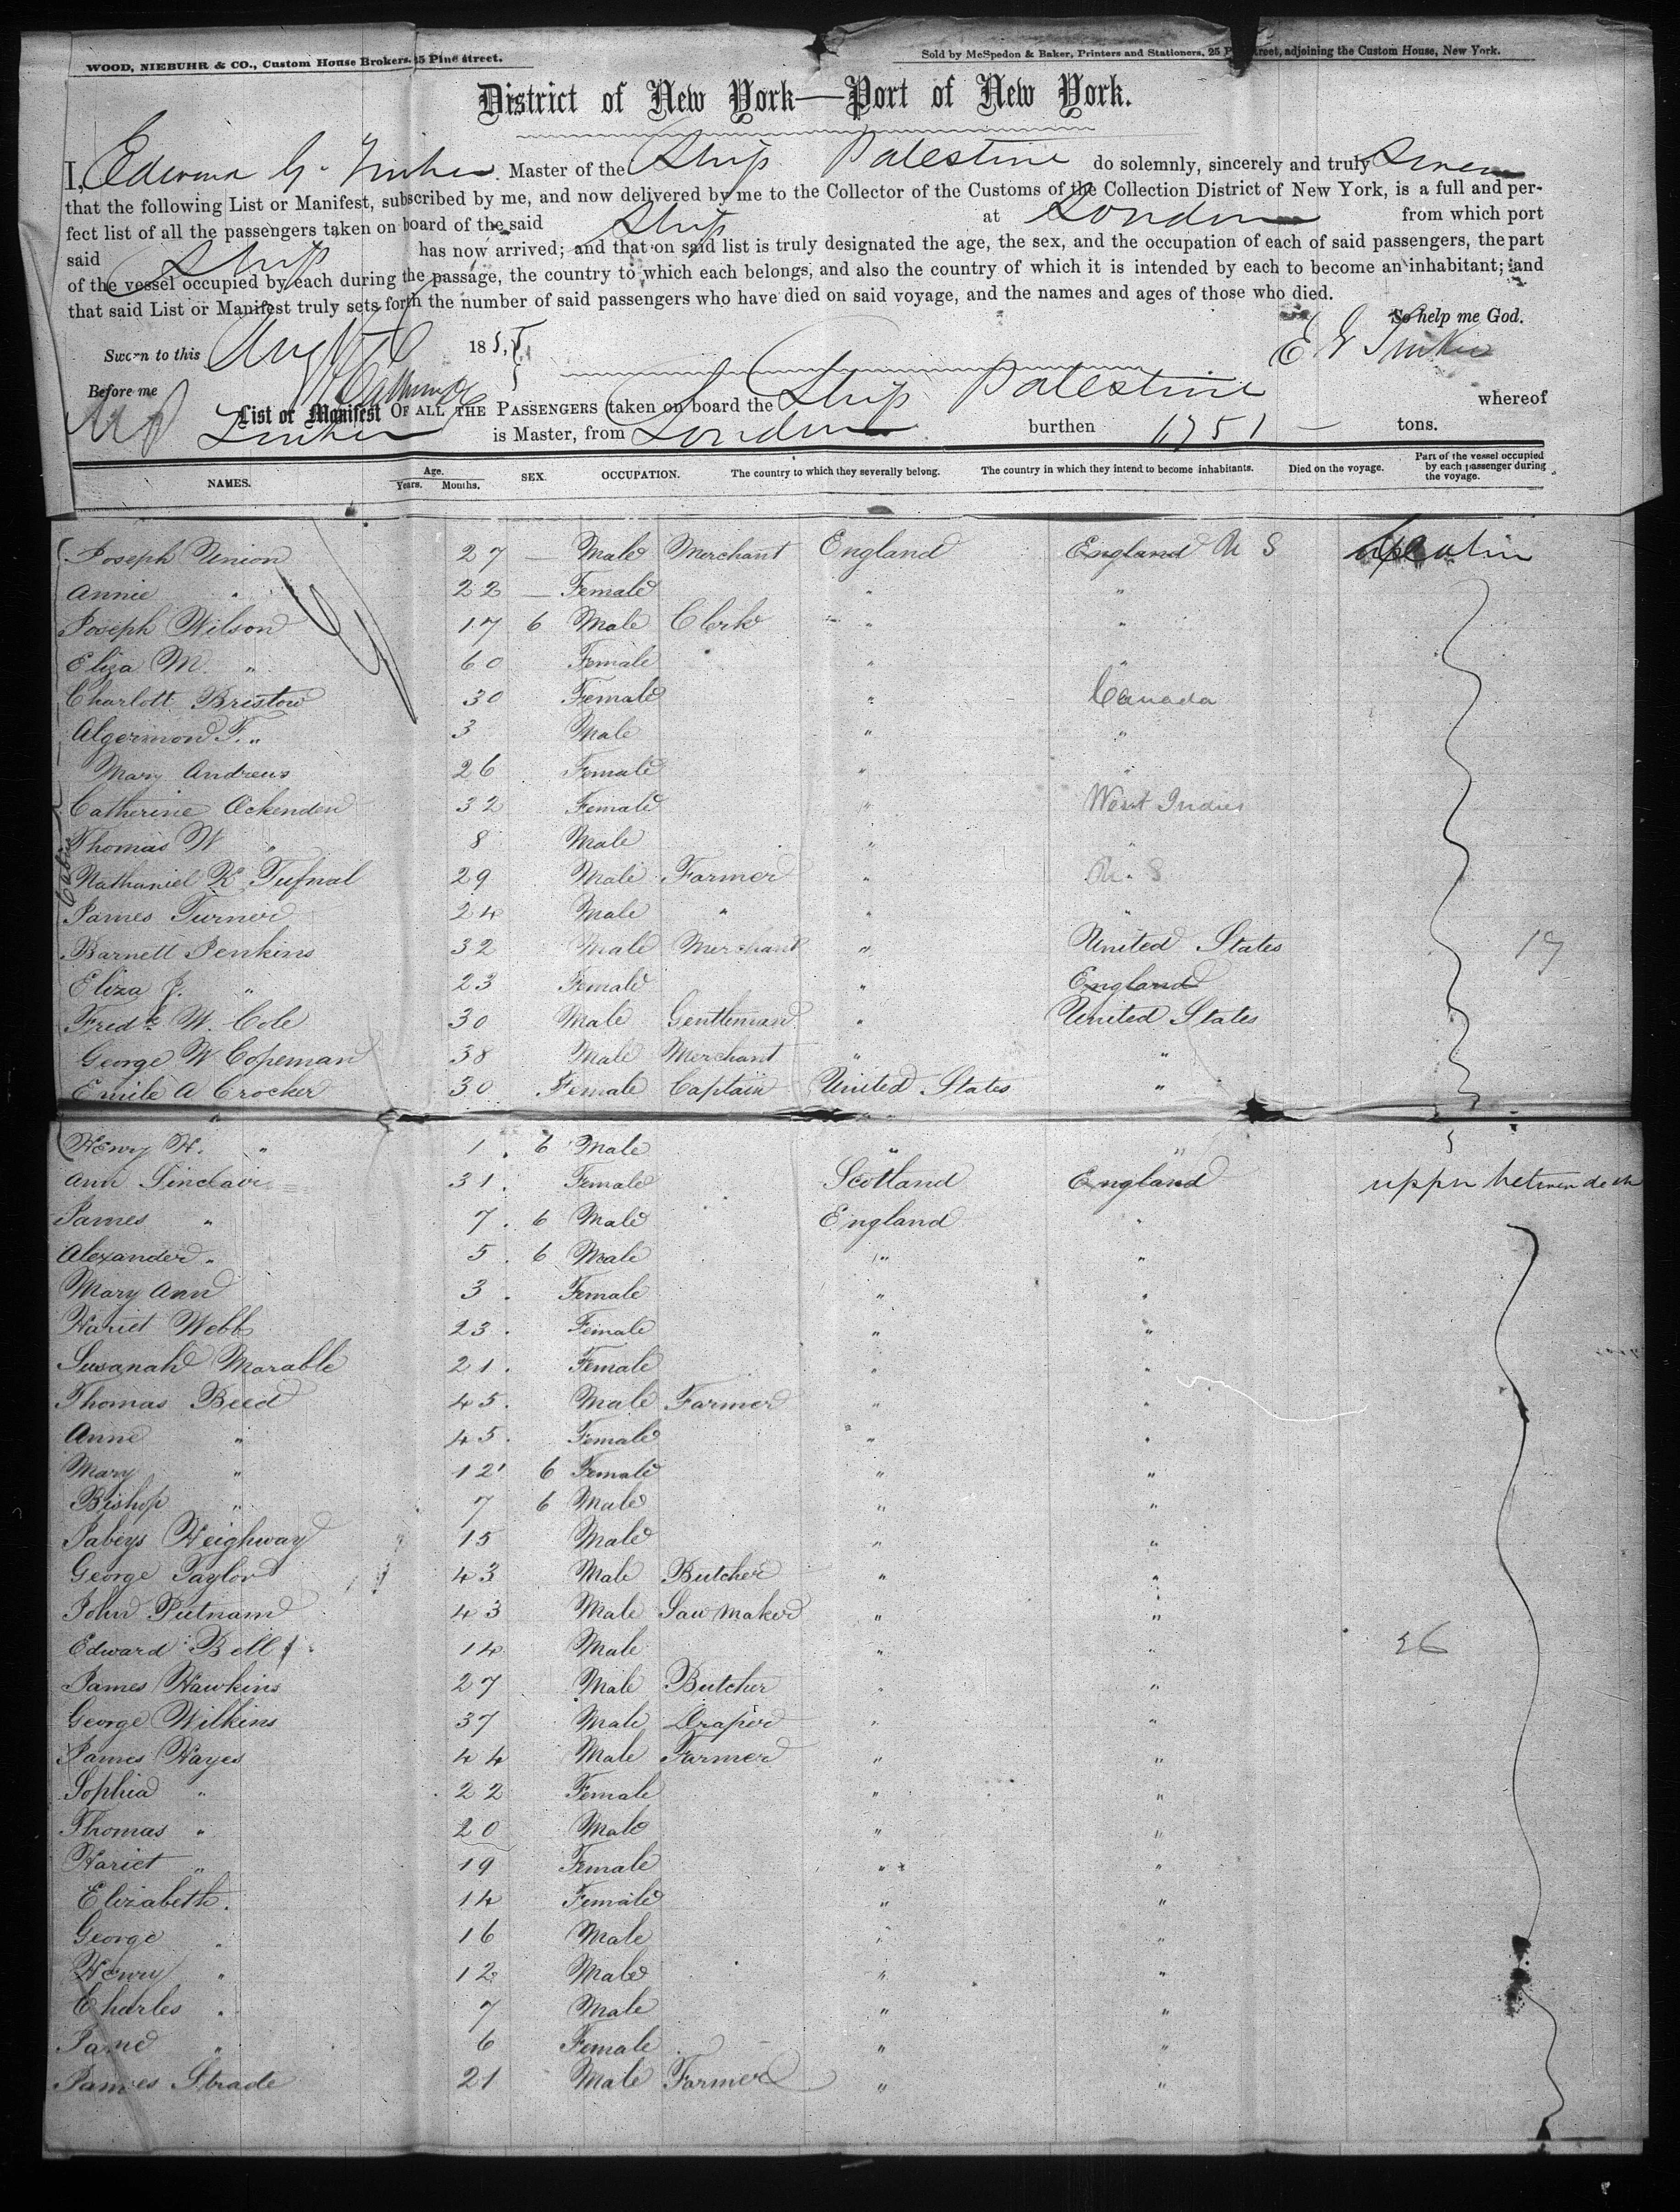 WOOD, NIEBUHR & CO., Custom House Brokers, 25 Pine Street.
Sold by McSpedon & Baker, Printers and Stationers, 25 Pine Street, adjoining the Custom House, New York.
District of New York—Port of New York.
I, G. Master of the Ship Palestine do solemnly, sincerely and truly Swear
that the following List or Manifest, subscribed by me, and now delivered by me to the Collector of the Customs of the Collection District of New York, is a full and per-
fect list of all the passengers taken on board of the said Ship at London from which port
said Ship has now arrived; and that on said list is truly designated the age, the sex, and the occupation of each of said passengers, the part
of the vessel occupied by each during the passage, the country to which each belongs, and also the country of which it is intended by each to become an inhabitant; and
that said List or Manifest truly sets forth the number of said passengers who have died on said voyage, and the names and ages of those who died.
So help me God.
Sworn to this Aug 185
E G Tinker
Before me
List or Manifest OF ALL THE PASSENGERS taken on board the Ship Palestine whereof
Tinker is Master, from London burthen 1751 — tons.
NAMES. Age. Years. Months. SEX. OCCUPATION. The country to which they severally belong. The country in which they intend to become inhabitants. Died on the voyage. Part of the vessel occupied by each passenger during the voyage.
Joseph Union 27 — Male Merchant England England U S Cabin
Annie " 22 — Female " "
Joseph Wilson 17 6 Male Clerk " "
Eliza M. " 60 Female " "
Charlott Bristow 30 Female " Canada
Algernon F. " 3 Male " "
Mary Andrews 26 Female " "
Catherine Ockenden 32 Female " West Indies
Thomas W " 8 Male " "
Cabin
Nathaniel K Tufnal 29 Male Farmer " U. S
James Turner 24 Male " " "
Barnett Jenkins 32 Male Merchant " United States 17
Eliza J. " 23 Female " England
Fredk W. Cole 30 Male Gentleman " United States
George W Copeman 38 Male Merchant " "
Emile A Crocker 30 Female Captain United States "
Henry H. " 1 6 Male " "
Ann Sinclair 31 Female Scotland England upper between deck
James " 7 6 Male England "
Alexander " 5 6 Male " "
Mary Ann 3 Female " "
Hariet Webb 23 Female " "
Susanah Marable 21 Female " "
Thomas Beed 45 Male Farmer " "
Anne " 45 Female " "
Mary " 12 6 Female " "
Bishop " 7 6 Male " "
Heighway 15 Male " "
George Taylor 43 Male Butcher " "
John Putnam 43 Male Saw maker " "
Edward Bell 14 Male " " 26
James Hawkins 27 Male Butcher " "
George Wilkins 37 Male Draper " "
James Hayes 44 Male Farmer " "
Sophia " 22 Female " "
Thomas " 20 Male " "
Hariet " 19 Female " "
Elizabeth. 14 Female " "
George " 16 Male " "
Henry " 12 Male " "
Charles " 7 Male " "
Jane " 6 Female " "
James Strade 21 Male Farmer " "